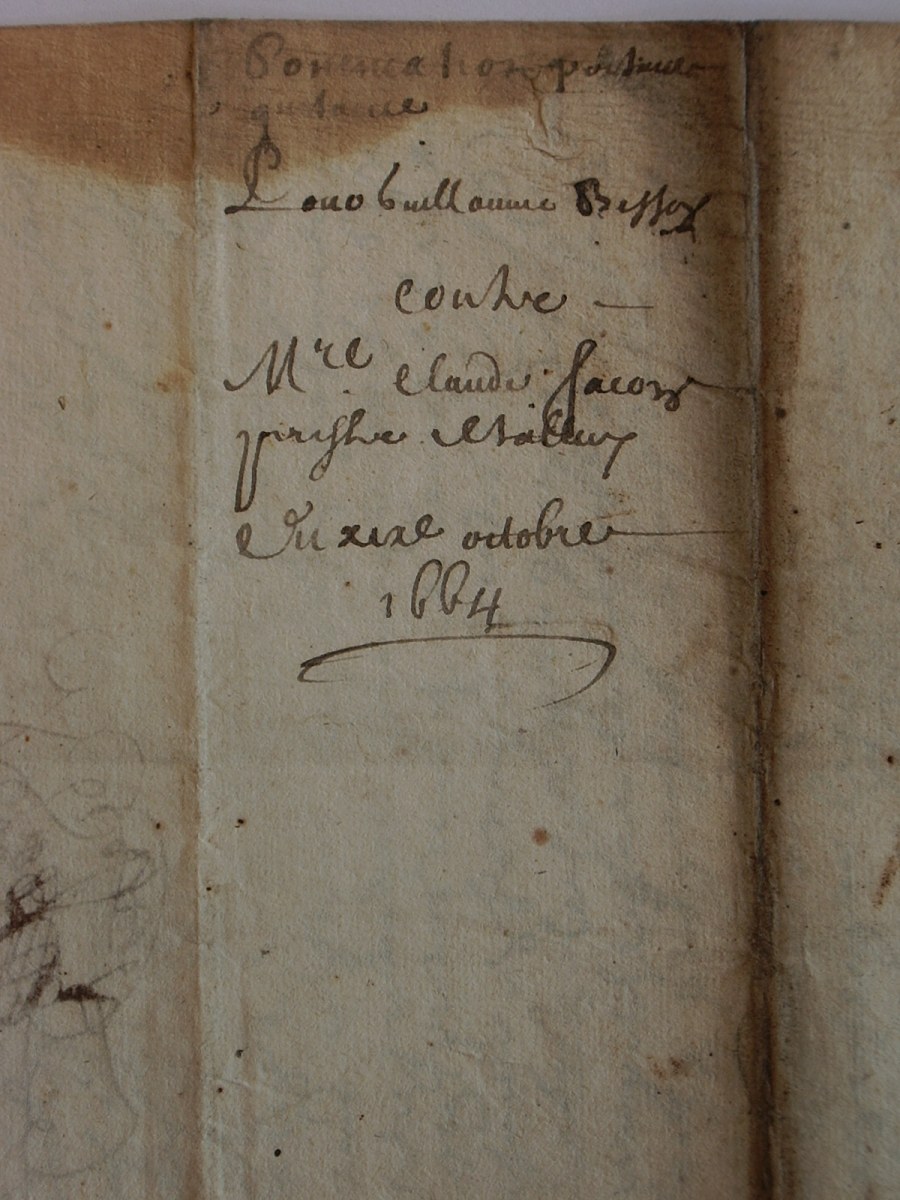 portant
quittance
Pour Guillaume Besson
contre
Mre Claude Jacon
prestre
Du xixe octobre
1664